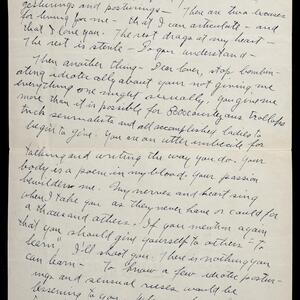 gesturings and posturings — There are two excuses
for living for me — that I can articulate — and
that I love you. The rest drags at my heart —
The rest is sterile — Do you understand —
Then another thing — dear lover, stop
idiotically about your not giving me
everything one might sensually. You give me
more than it is possible for 800 courtesans trollops
such sensualists and all accomplished ladies to
begin to give. You are an utter imbecile for
talking and writing the way you do. Your
body is a poem in my blood. Your passion
bewilders me. My nerves and heart sing
when I take you as they never have or could for
a thousand others. If you mention again
that you should give yourself to others "to
learn" I'll shoot you. There is nothing you
can learn — to know a few idiotic postur-
ings and sensual ruses would be
lessening to you